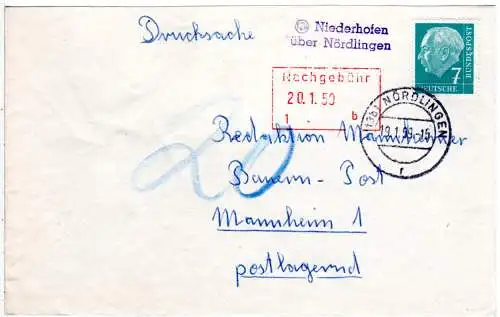 Drucksache
Niederhofen
über Nördlingen
7
DEUTSCHE
BUNDESPOST
Nachgebühr
20.1.59
1 b
(13b) NÖRDLINGEN
19.1.59-15
f
20
Redaktion Mannheimer
Bauern-Post
Mannheim 1
postlagernd